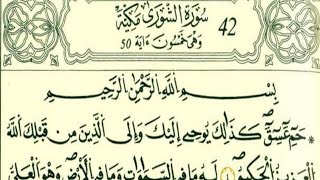 سُورَةُ الشُّورَىٰ مَكِّيَّةٌ 42
وَهِيَ خَمْسُونَ ءَايَة 50
بِسْمِ اللَّهِ الرَّحْمَٰنِ الرَّحِيمِ
حمٓ عٓسٓقٓ كَذَٰلِكَ يُوحِي إِلَيْكَ وَإِلَى الَّذِينَ مِن قَبْلِكَ اللَّهُ
الْعَزِيزُ الْحَكِيمُ ١ لَهُ مَا فِي السَّمَاوَاتِ وَمَا فِي الْأَرْضِ وَهُوَ الْعَلِيُّ